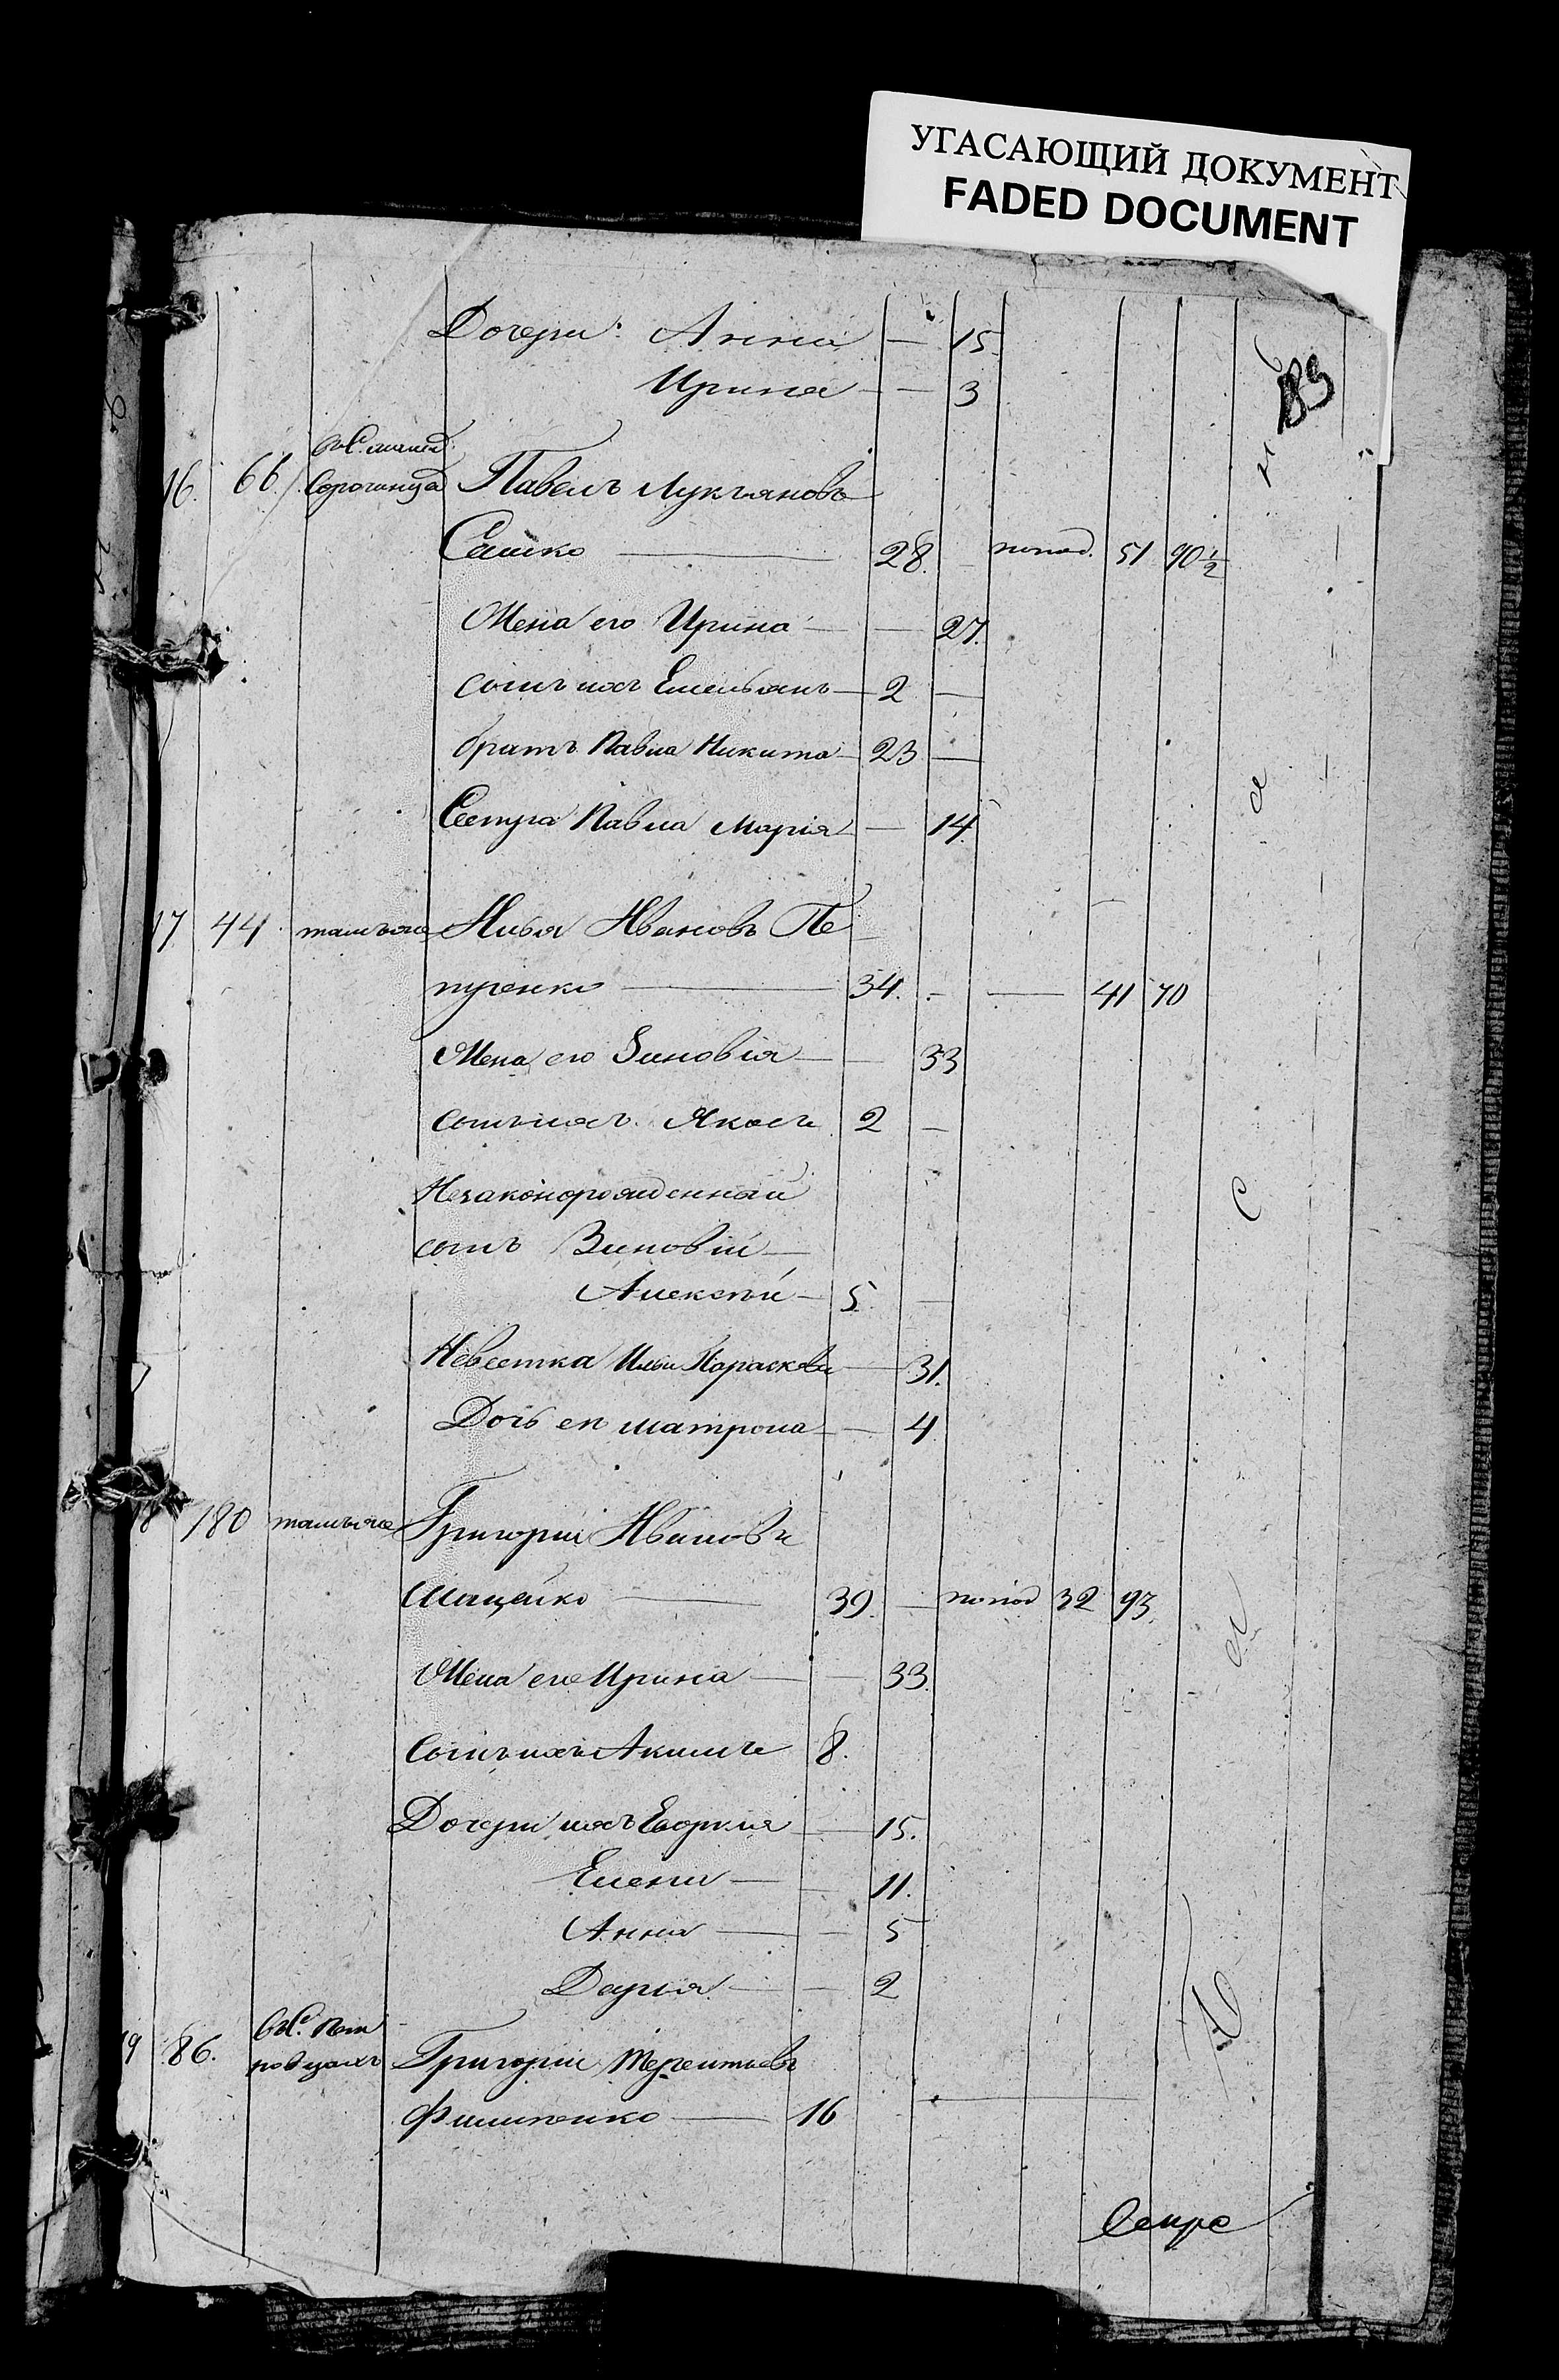 УГАСАЮЩИЙ ДОКУМЕНТ
FADED DOCUMENT
Дочери: Анна — 15.
Ирина — — 3
16. 66. Сорочинца Павелъ Лукьяновъ
Сашко — 28. — 51 90 1/2
Жена его Ирина — — 27.
сынъ ихъ Емельянъ — 2 —
братъ Павла Никита — 23 —
Сестра Павла Марія — 14.
17 44 тамъже Илья Ивановъ Пе
тренко — 34. — 41 70
Жена его Зиновія — 33
сынъ ихъ Яковъ 2 —
Незаконорожденный
сынъ Зиновіи —
Алексѣй — 5. —
Невестка Ильи Параскева — 31.
Дочь ея Матрона — — 4
18 180 тамъже Григорій Ивановъ
39. — 32 93
Жена его Ирина — — 33.
Сынъ ихъ Акимъ 8.
Дочери ихъ — 15.
Елена — — 11.
Анна — — 5
Дарья — — 2
19 86. Григорій Терентьевъ
Филипенко — 16